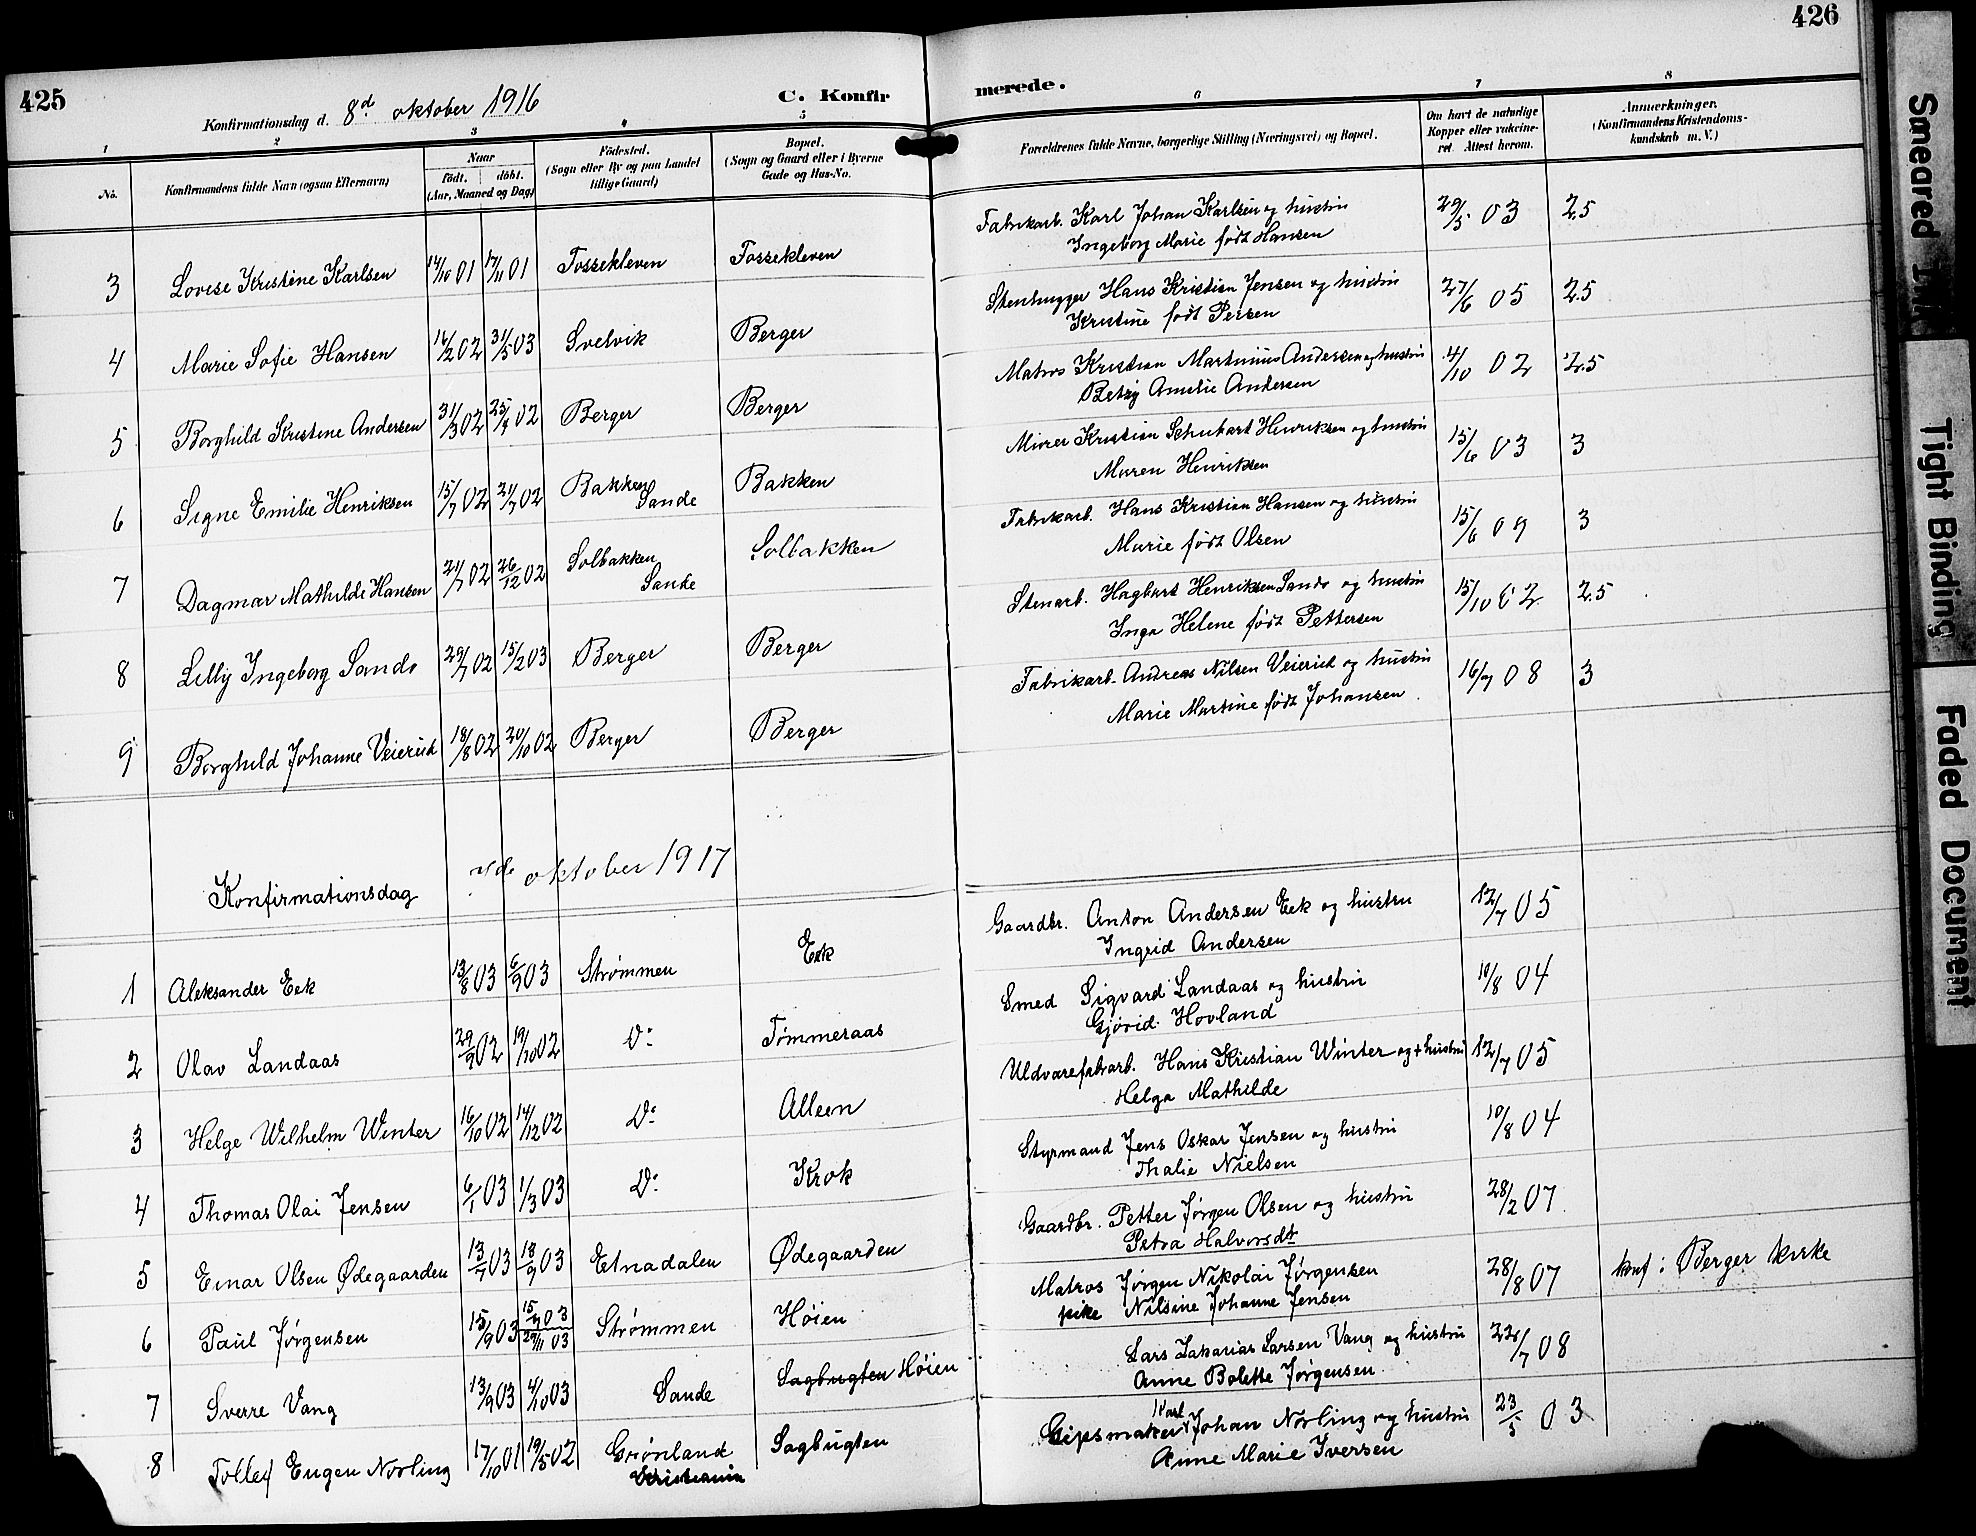 425
Konfirmationsdag d. 8d oktober 1916
C. Konfir
1 2 3 4 5
No.
Konfirmandens fulde Navn (ogsaa Efternavn)
Naar
født. døbt.
(Aar, Maaned og Dag)
Fødested.
(Sogn eller By og paa Landet
tillige Gaard)
Bopæl.
(Sogn og Gaard eller i Byerne
Gade og Hus-No.
3 Lovise Kristine Karlsen 14/10 01 17/11 01 Fossekleven Fossekleven
4 Marie Sofie Hansen 16/2 02 31/5 03 Svelvik Berger
5 Borghild Kristine Andersen 31/3 02 Berger Berger
6 Signe Emilie Henriksen 15/7 02 Bakken Sande Bakken
7 Dagmar Mathilde Hansen 02 26/12 02 Solbakken Sande Solbakken
8 Lilly Ingeborg Sando 29/7 02 15/2 03 Berger Berger
9 Borghild Johanne Veierud 18/8 02 20/10 02 Berger Berger
Konfirmationsdag oktober 1917
1 Aleksander Eek 13/8 03 6/9 03 Strømmen Eek
2 Olav Landaas 29/9 02 19/10 02 Do Tømmeraas
3 Helge Wilhelm Winter 16/10 02 14/12 02 Do Alleen
4 Thomas Olai Jensen 6/1 03 1/3 03 Do Krok
5 Einar Olsen Ødegaarden 13/7 03 18/9 03 Etnadalen Ødegaarden
6 Paul Jørgensen 15/9 03 29/11 03 Strømmen Høien
7 Sverre Vang 13/9 03 4/10 03 Sande Sagbugten Høien
8 Tollef Eugen Norling 17/10 01 19/5 02 Grønland Kristiania Sagbugten
426
merede.
6 7 8
Forældrenes fulde Navne, borgerlige Stilling (Næringsvei) og Bopæl.
Om havt de naturlige
Kopper eller vaccine-
ret. Attest herom.
Anmærkninger.
(Konfirmandens Kristendoms-
kundskab m. V.)
Fabrikarb. Karl Johan Karlsen og hustru 29/5 03 2.5
Ingeborg Marie født Hansen
Stenhugger Hans Kristian Jensen og hustru 27/6 05 2.5
Kristine født Persen
Matros Kristian Martinius Andersen og hustru 4/10 02 2.5
Betzy Amelie Andersen
Minrer Kristian Schubart Henriksen og hustru 15/6 03 3
Maren Henriksen
Fabrikarb. Hans Kristian Hansen og hustru 15/6 09 3
Marie født Olsen
Stenarb. Hagbart Henriksen Sando og hustru 15/10 02 2.5
Inga Helene født Pettersen
Fabrikarb. Andreas Nilsen Veierud og hustru 16/7 08 3
Marie Martine født Johansen
Gaardbr. Anton Andersen Eek og hustru 12/7 05
Ingrid Andersen
Smed Sigvard Landaas og hustru 10/8 04
Gjørid Hovland
Uldvarefabarb. Hans Kristian Winter og hustru 12/7 05
Helga Mathilde
Styrmand Jens Oskar Jensen og hustru 10/8 04
Thalie Nielsen
Gaardbr. Petter Jørgen Olsen og hustru 28/2 07
Petra Halvorsdt
Matros Jørgen Nikolai Jørgensen 28/8 07 konf: Berger kirke
pike Nilsine Johanne Jensen
Lars Zakarias Larsen Vang og hustru 22/7 08
Anne Bolette Jørgensen
Karl
Gipsmaker Johan Norling og hustru 23/5 03
Anne Marie Iversen
Smeared Ink
Tight Binding
Faded Document